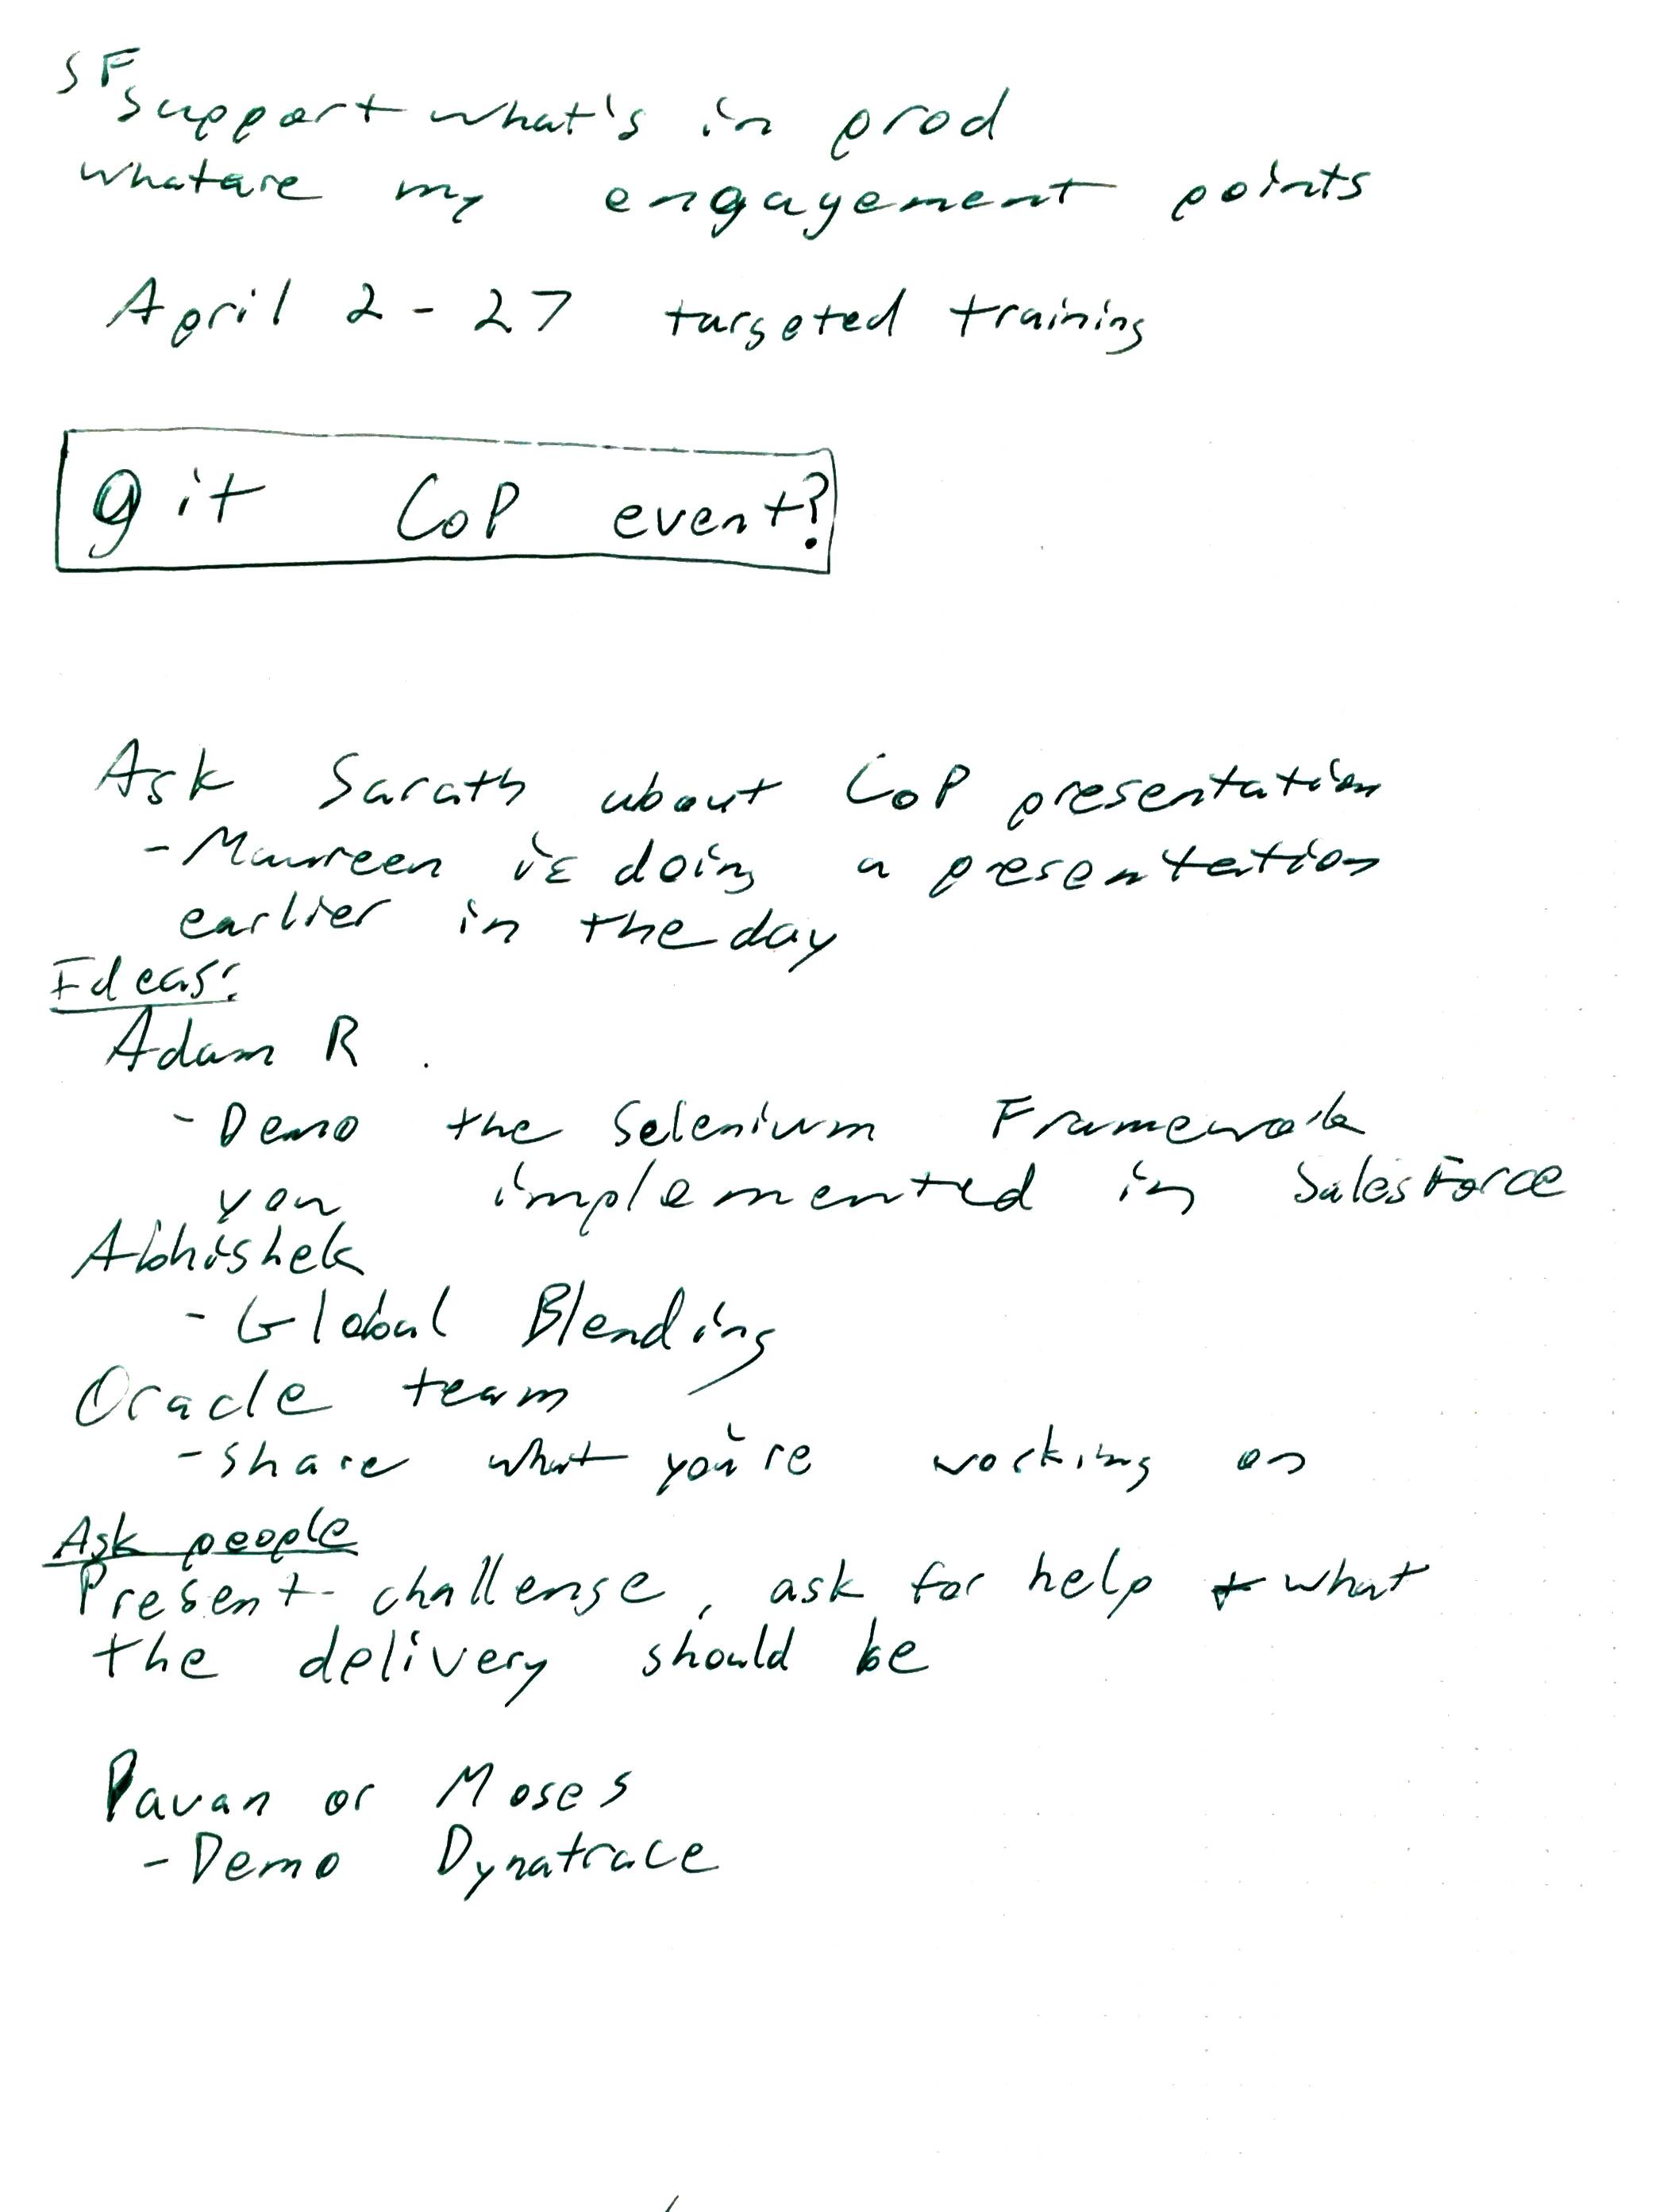 SF
support what's in prod
what are my engagement points
April 2-27 targeted training
git CoP event?
Ask Sarath about CoP presentation
- Maureen is doing a presentation
earlier in the day
Ideas:
Adam R.
- Demo the Selenium Framework
you implemented in SalesForce
Abhishek
- Global Blending
Oracle team
- share what you're working on
Ask people
Present challenge, ask for help + what
the delivery should be
Pavan or Moses
- Demo Dynatrace